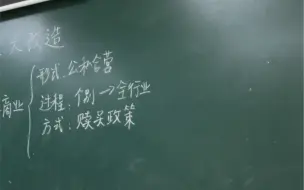 大改造
商业
形式:公私合营
过程:个别→全行业
方式:赎买政策